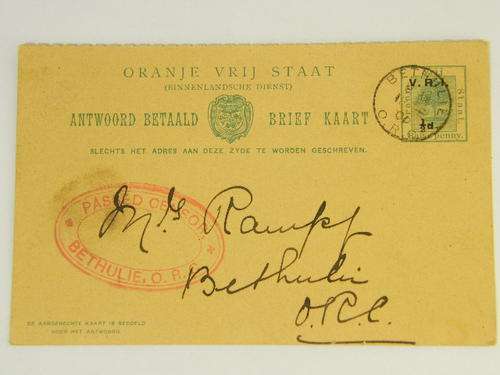 ORANJE VRIJ STAAT
(BINNENLANDSCHE DIENST)
ANTWOORD BETAALD BRIEF KAART
SLECHTS HET ADRES AAN DEZE ZYDE TE WORDEN GESCHREVEN.
BETHULIE
O.R.C.
V. R. I.
½d.
Half penny.
PASSED CENSOR
BETHULIE, O. R. C.
Rampf
Bethulie
O.R.C.
DE AANGEHECHTE KAART IS BEDOELD
VOOR HET ANTWOORD.